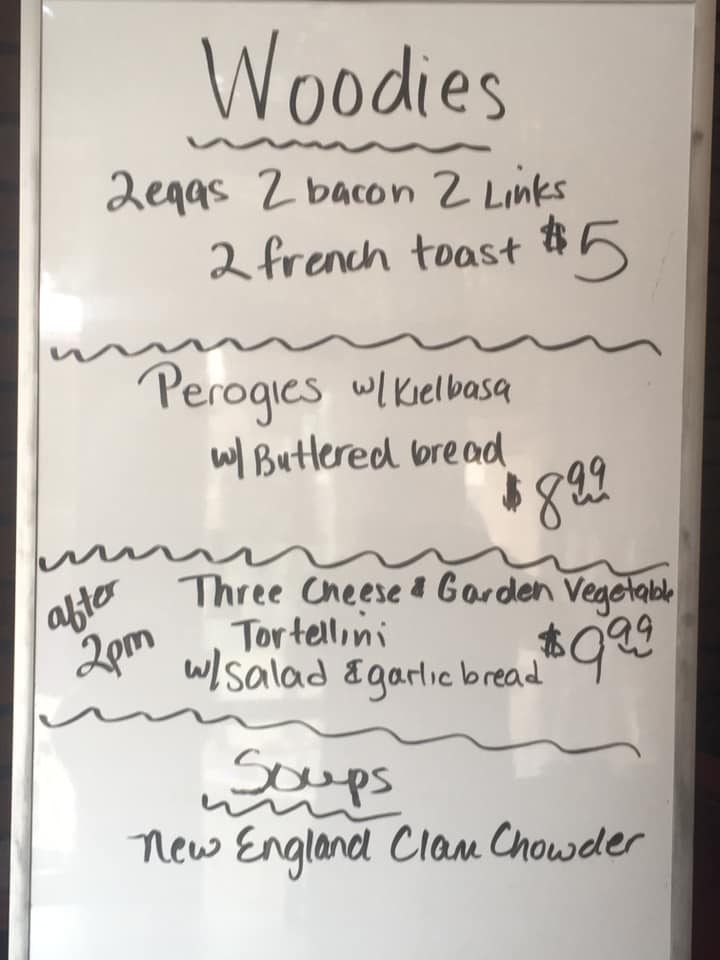 Woodies
2 eggs 2 bacon 2 Links
2 french toast $5
Perogies w/ Kielbasa
w/ Buttered bread
$8.99
after
2pm
Three Cheese & Garden Vegetable
Tortellini $9.99
w/ salad & garlic bread
Soups
New England Clam Chowder